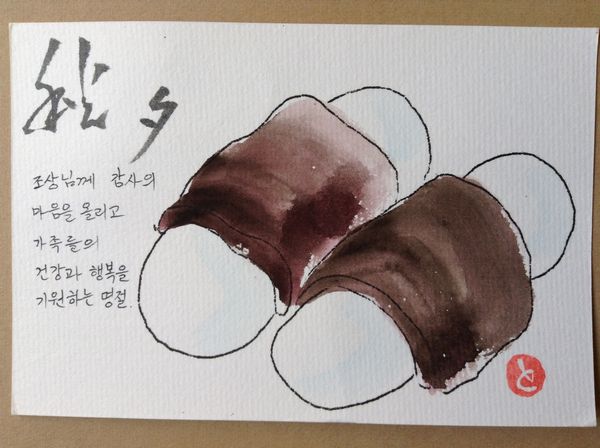 秋夕
조상님께 감사의
마음을 올리고
가족들의
건강과 행복을
기원하는 명절.
と